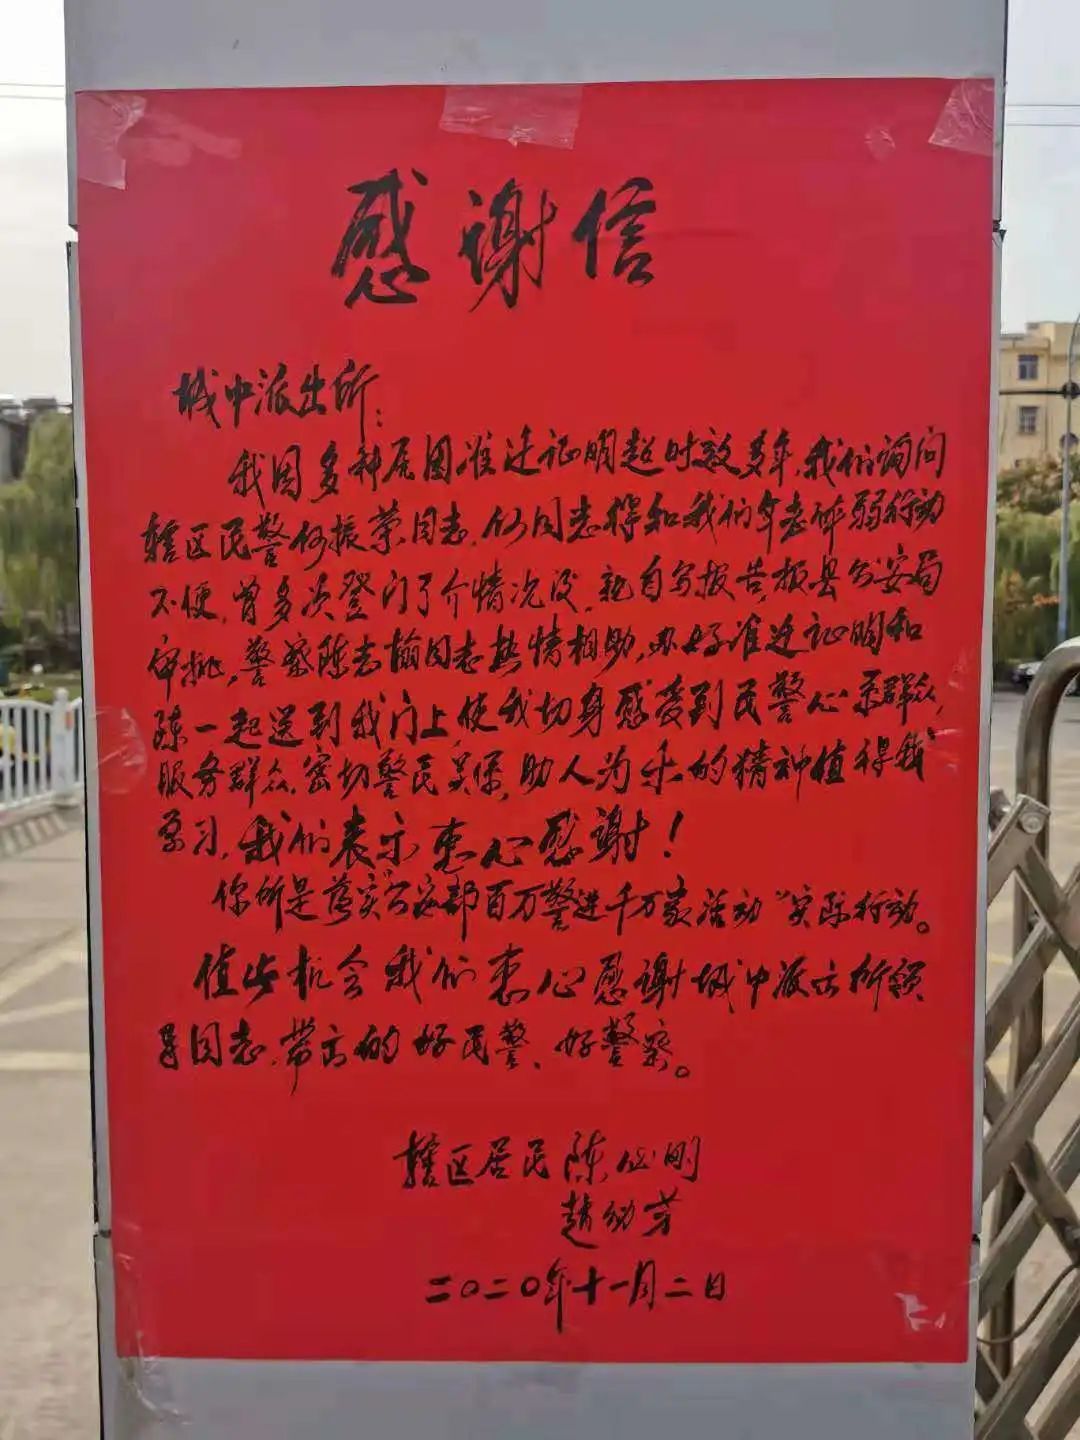 感谢信
城中派出所：
我因多种原因准迁证明超时效多年，我们询问
辖区民警何振荣同志，何同志得知我们年老体弱行动
不便，曾多次登门了介情况后，亲自写报告，报县公安局
审批，警察陈志翰同志热情相助，办好准迁证明和
陈一起送到我门上，使我切身感受到民警心系群众，
服务群众，密切警民关系，助人为乐的精神值得我
学习，我们表示衷心感谢！
你所是落实公安部百万警进千万家活动"实际行动。
值此机会我们衷心感谢城中派出所领
导同志，带出的好民警、好警察。
辖区居民 陈 刚
赵幼芳
二〇二〇年十一月二日